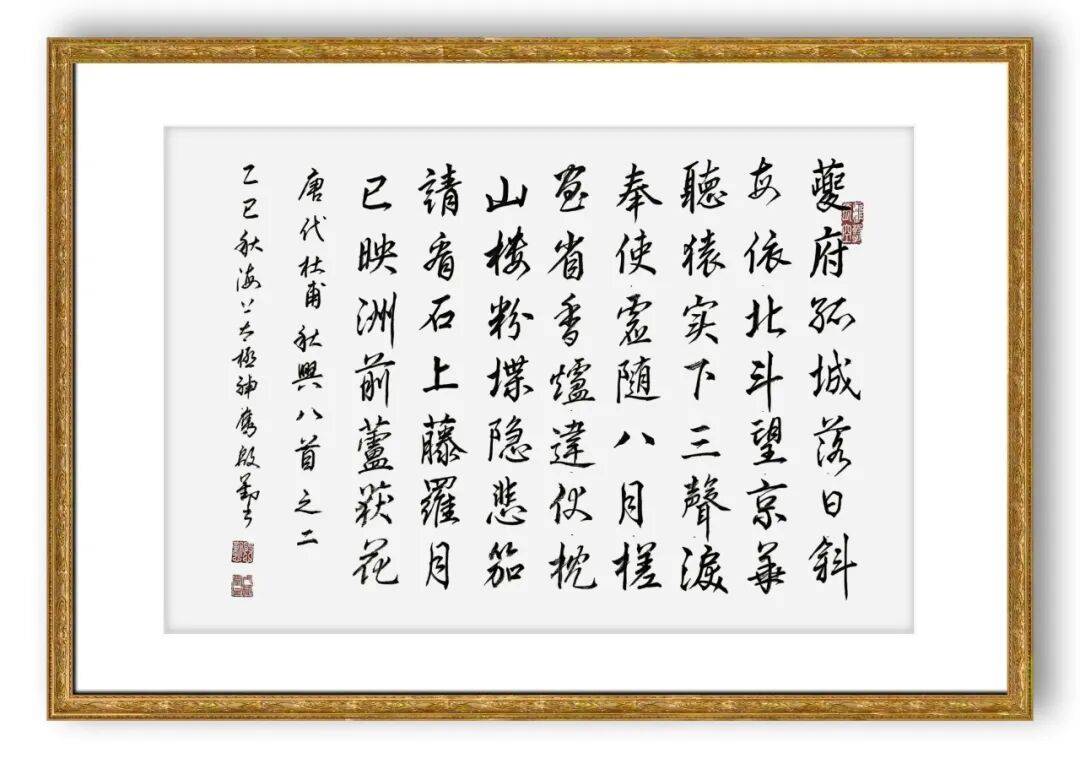 夔府孤城落日斜
每依北斗望京華
聽猿实下三聲淚
奉使虚随八月槎
畫省香爐違伏枕
山楼粉堞隐悲笳
請看石上藤羅月
已映洲前蘆荻花
唐代杜甫秋興八首之二
乙巳秋海上太極神鹰殷勤书